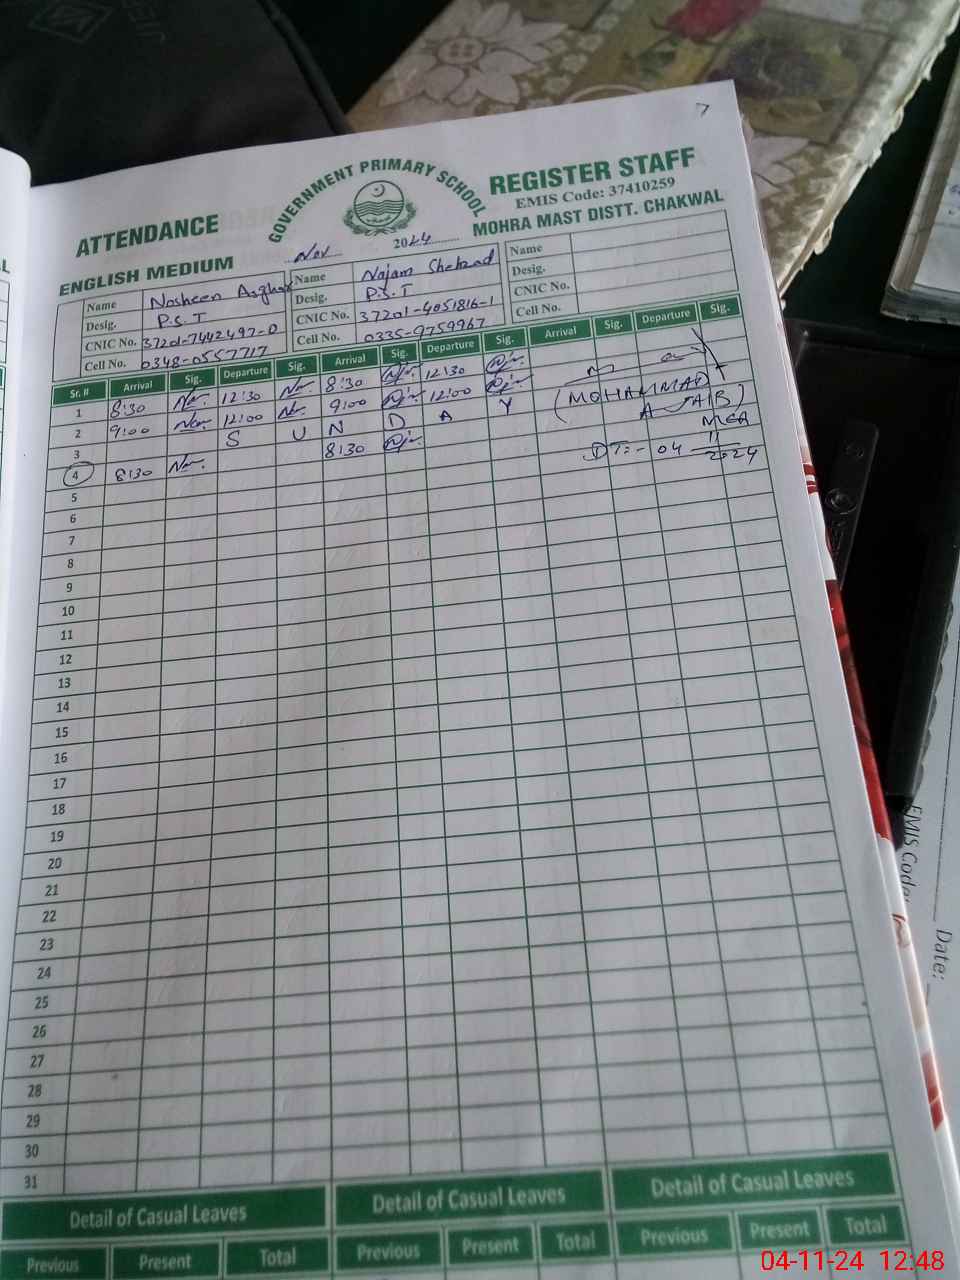 7
GOVERNMENT PRIMARY SCHOOL
ATTENDANCE REGISTER STAFF
EMIS Code: 37410259
ENGLISH MEDIUM MOHRA MAST DISTT. CHAKWAL
Nov 2024
Name Nosheen Asghar Name Najam Shehzad Name
Desig. P.S.T Desig. P.S.T Desig.
CNIC No. 37201-7442497-0 CNIC No. 37201-4051816-1 CNIC No.
Cell No. 0348-0557717 Cell No. 0335-9759967 Cell No.
Sr. # Arrival Sig. Departure Sig. Arrival Sig. Departure Sig. Arrival Sig. Departure Sig.
1 8:30 12:30 8:30 12:30
2 9:00 12:00 9:00 12:00
3 S U N D A Y
4 8:30 8:30
(MOHAMMAD
MEA
DT:- 04 11 2024
5
6
7
8
9
10
11
12
13
14
15
16
17
18
19
20
21
22
23
24
25
26
27
28
29
30
31
Detail of Casual Leaves Detail of Casual Leaves Detail of Casual Leaves
Previous Present Total Previous Present Total Previous Present Total
EMIS Code:
Date:
04-11-24 12:48